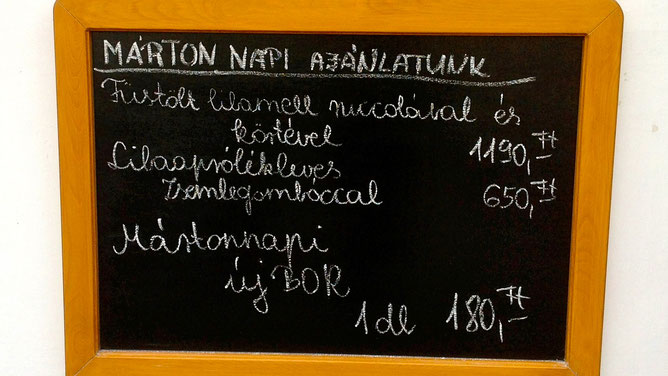 MÁRTON NAPI AJÁNLATUNK
Füstölt libamell ruccolával és
körtével 1190,- Ft
Libaaprólékleves
zsemlegombóccal 650,- Ft
Mártonnapi
új BOR
1 dl 180,- Ft